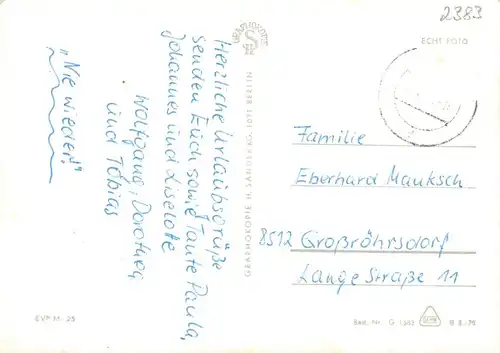 2383
ECHT FOTO
Herzliche Urlaubsgrüße
senden Euch sowie Tante Paula,
Johannes und Liselote
Wolfgang, Dorothea
und Tobias
"Nie wieder!"
GRAPHOKOPIE H. SANDER KG, 1071 BERLIN
Familie
Eberhard Mauksch
8512 Großröhrsdorf
Lange Straße 11
EVP M -.25
Best. Nr. G 1383